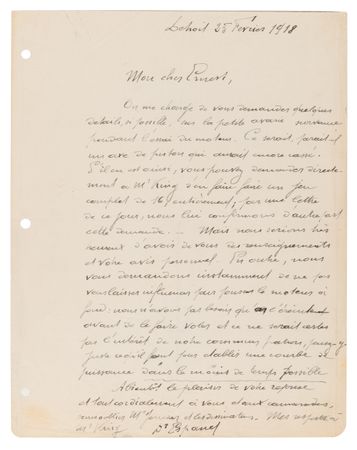 Detroit 25 Février 1918
Mon cher Ernest,
On me charge de vous demander quelques
détails, si possible, sur la petite avarie survenue
pendant l'essai du moteur. Ce serait, paraît-il
un axe de piston qui aurait encore cassé.
S'il en est ainsi, vous pouvez demander directe-
ment à Mr King d'en faire faire un jeu
complet de 16, entièrement, par une lettre
de ce jour, nous lui confirmons d'autre part
cette demande. - Mais nous serions très
heureux d'avoir de vous des renseignements
et votre avis personnel. En outre, nous
vous demandons instamment de ne pas
vous laisser influencer pour pousser le moteur à
fond: nous n'avons pas besoin qu'on l'éreinte
avant de le faire voler et ce ne serait certes
pas l'intérêt de notre commun patron,
juste n'est pas établie une courbe de
puissance dans le moins de temps possible
A bientôt le plaisir de votre réponse
et tout cordialement à vous et aux camarades,
Mr et les dessinateurs. Mes respects à
Mr King